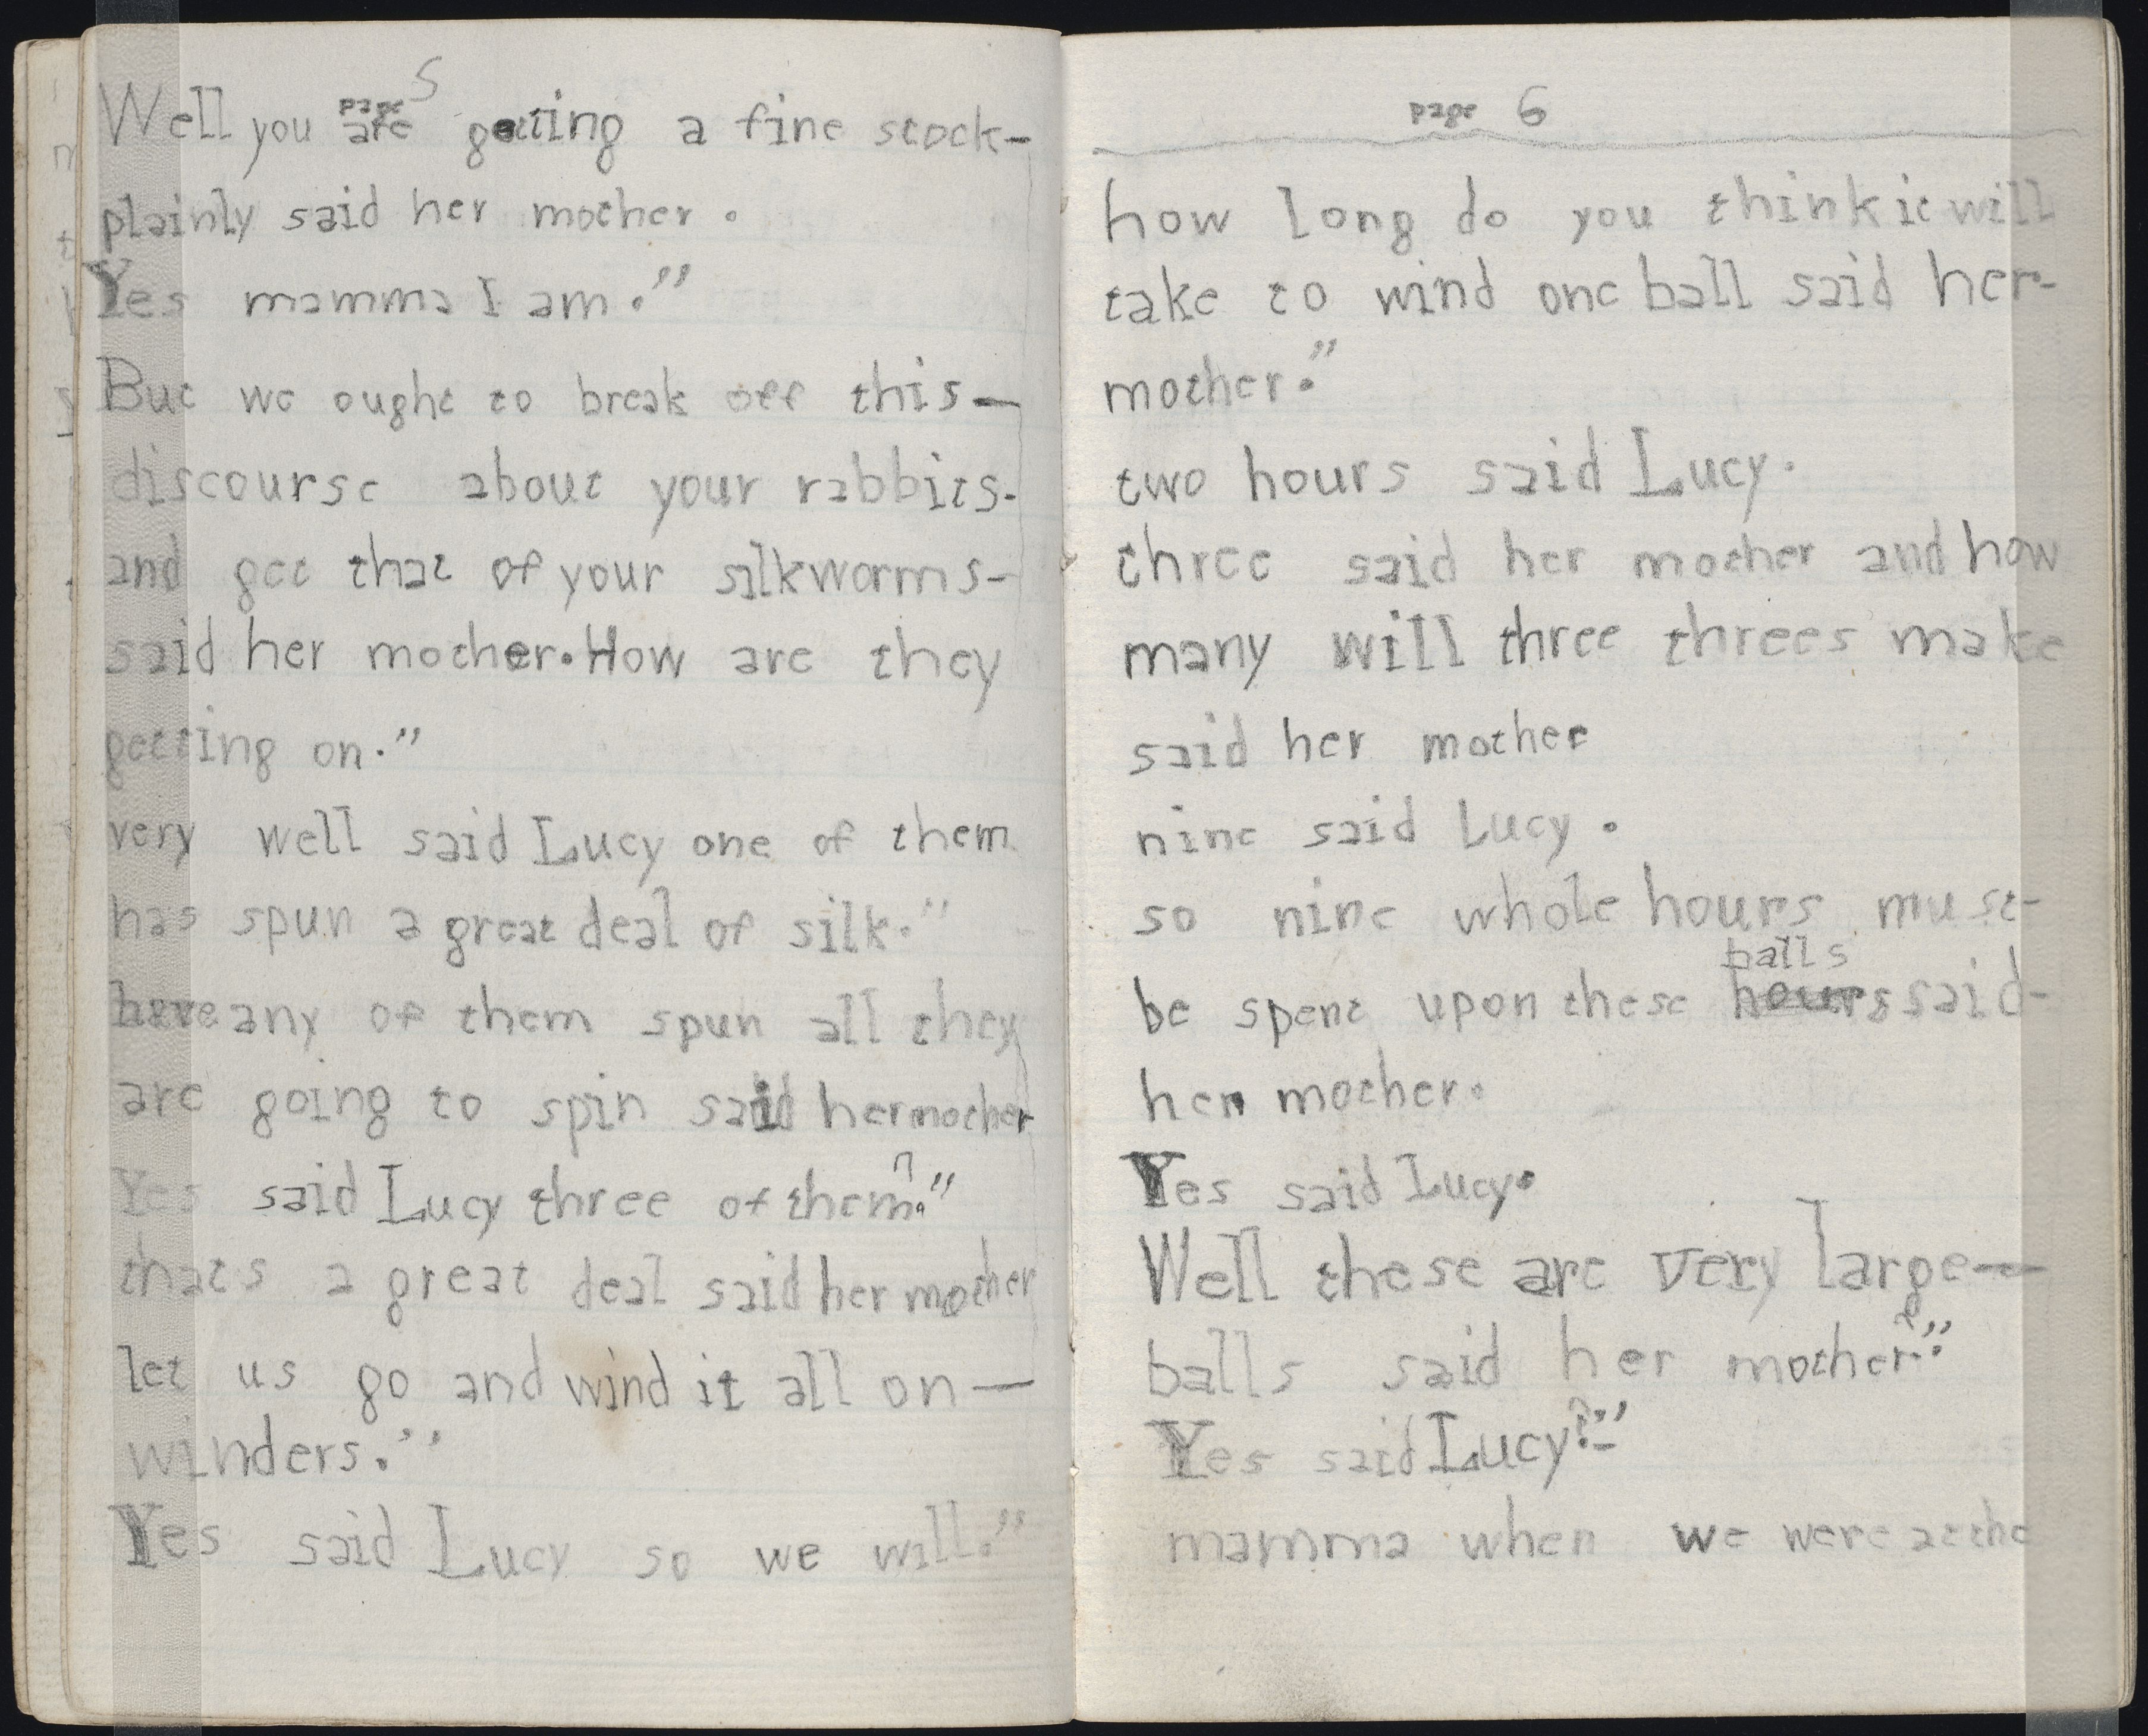 page 5
Well you are getting a fine stock-
plainly said her mother.
Yes mamma I am."
But we ought to break off this-
discourse about your rabbits-
and get that of your silkworms-
said her mother. How are they
getting on."
very well said Lucy one of them
has spun a great deal of silk."
have any of them spun all they
are going to spin said her mother
Yes said Lucy three of them?."
thats a great deal said her mother
let us go and wind it all on-
winders."
Yes said Lucy so we will."
page 6
how long do you think it will
take to wind one ball said her-
mother."
two hours said Lucy.
three said her mother and how
many will three threes make
said her mother
nine said Lucy.
so nine whole hours must-
balls
be spent upon these hours said-
her mother.
Yes said Lucy.
Well these are very large-
balls said her mother?."
Yes said Lucy?."
mamma when we were at the